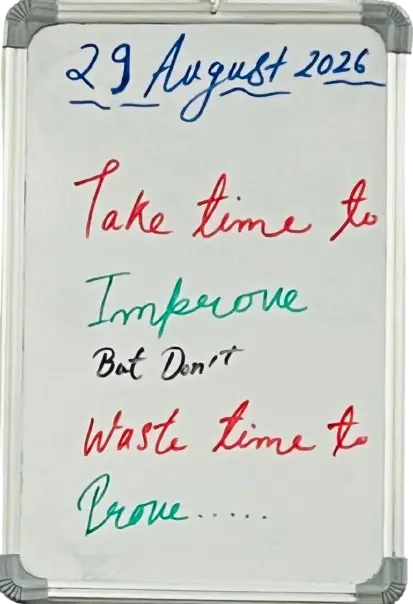 29 August 2026
Take time to
Improve
But Don't
Waste time to
Prove.....